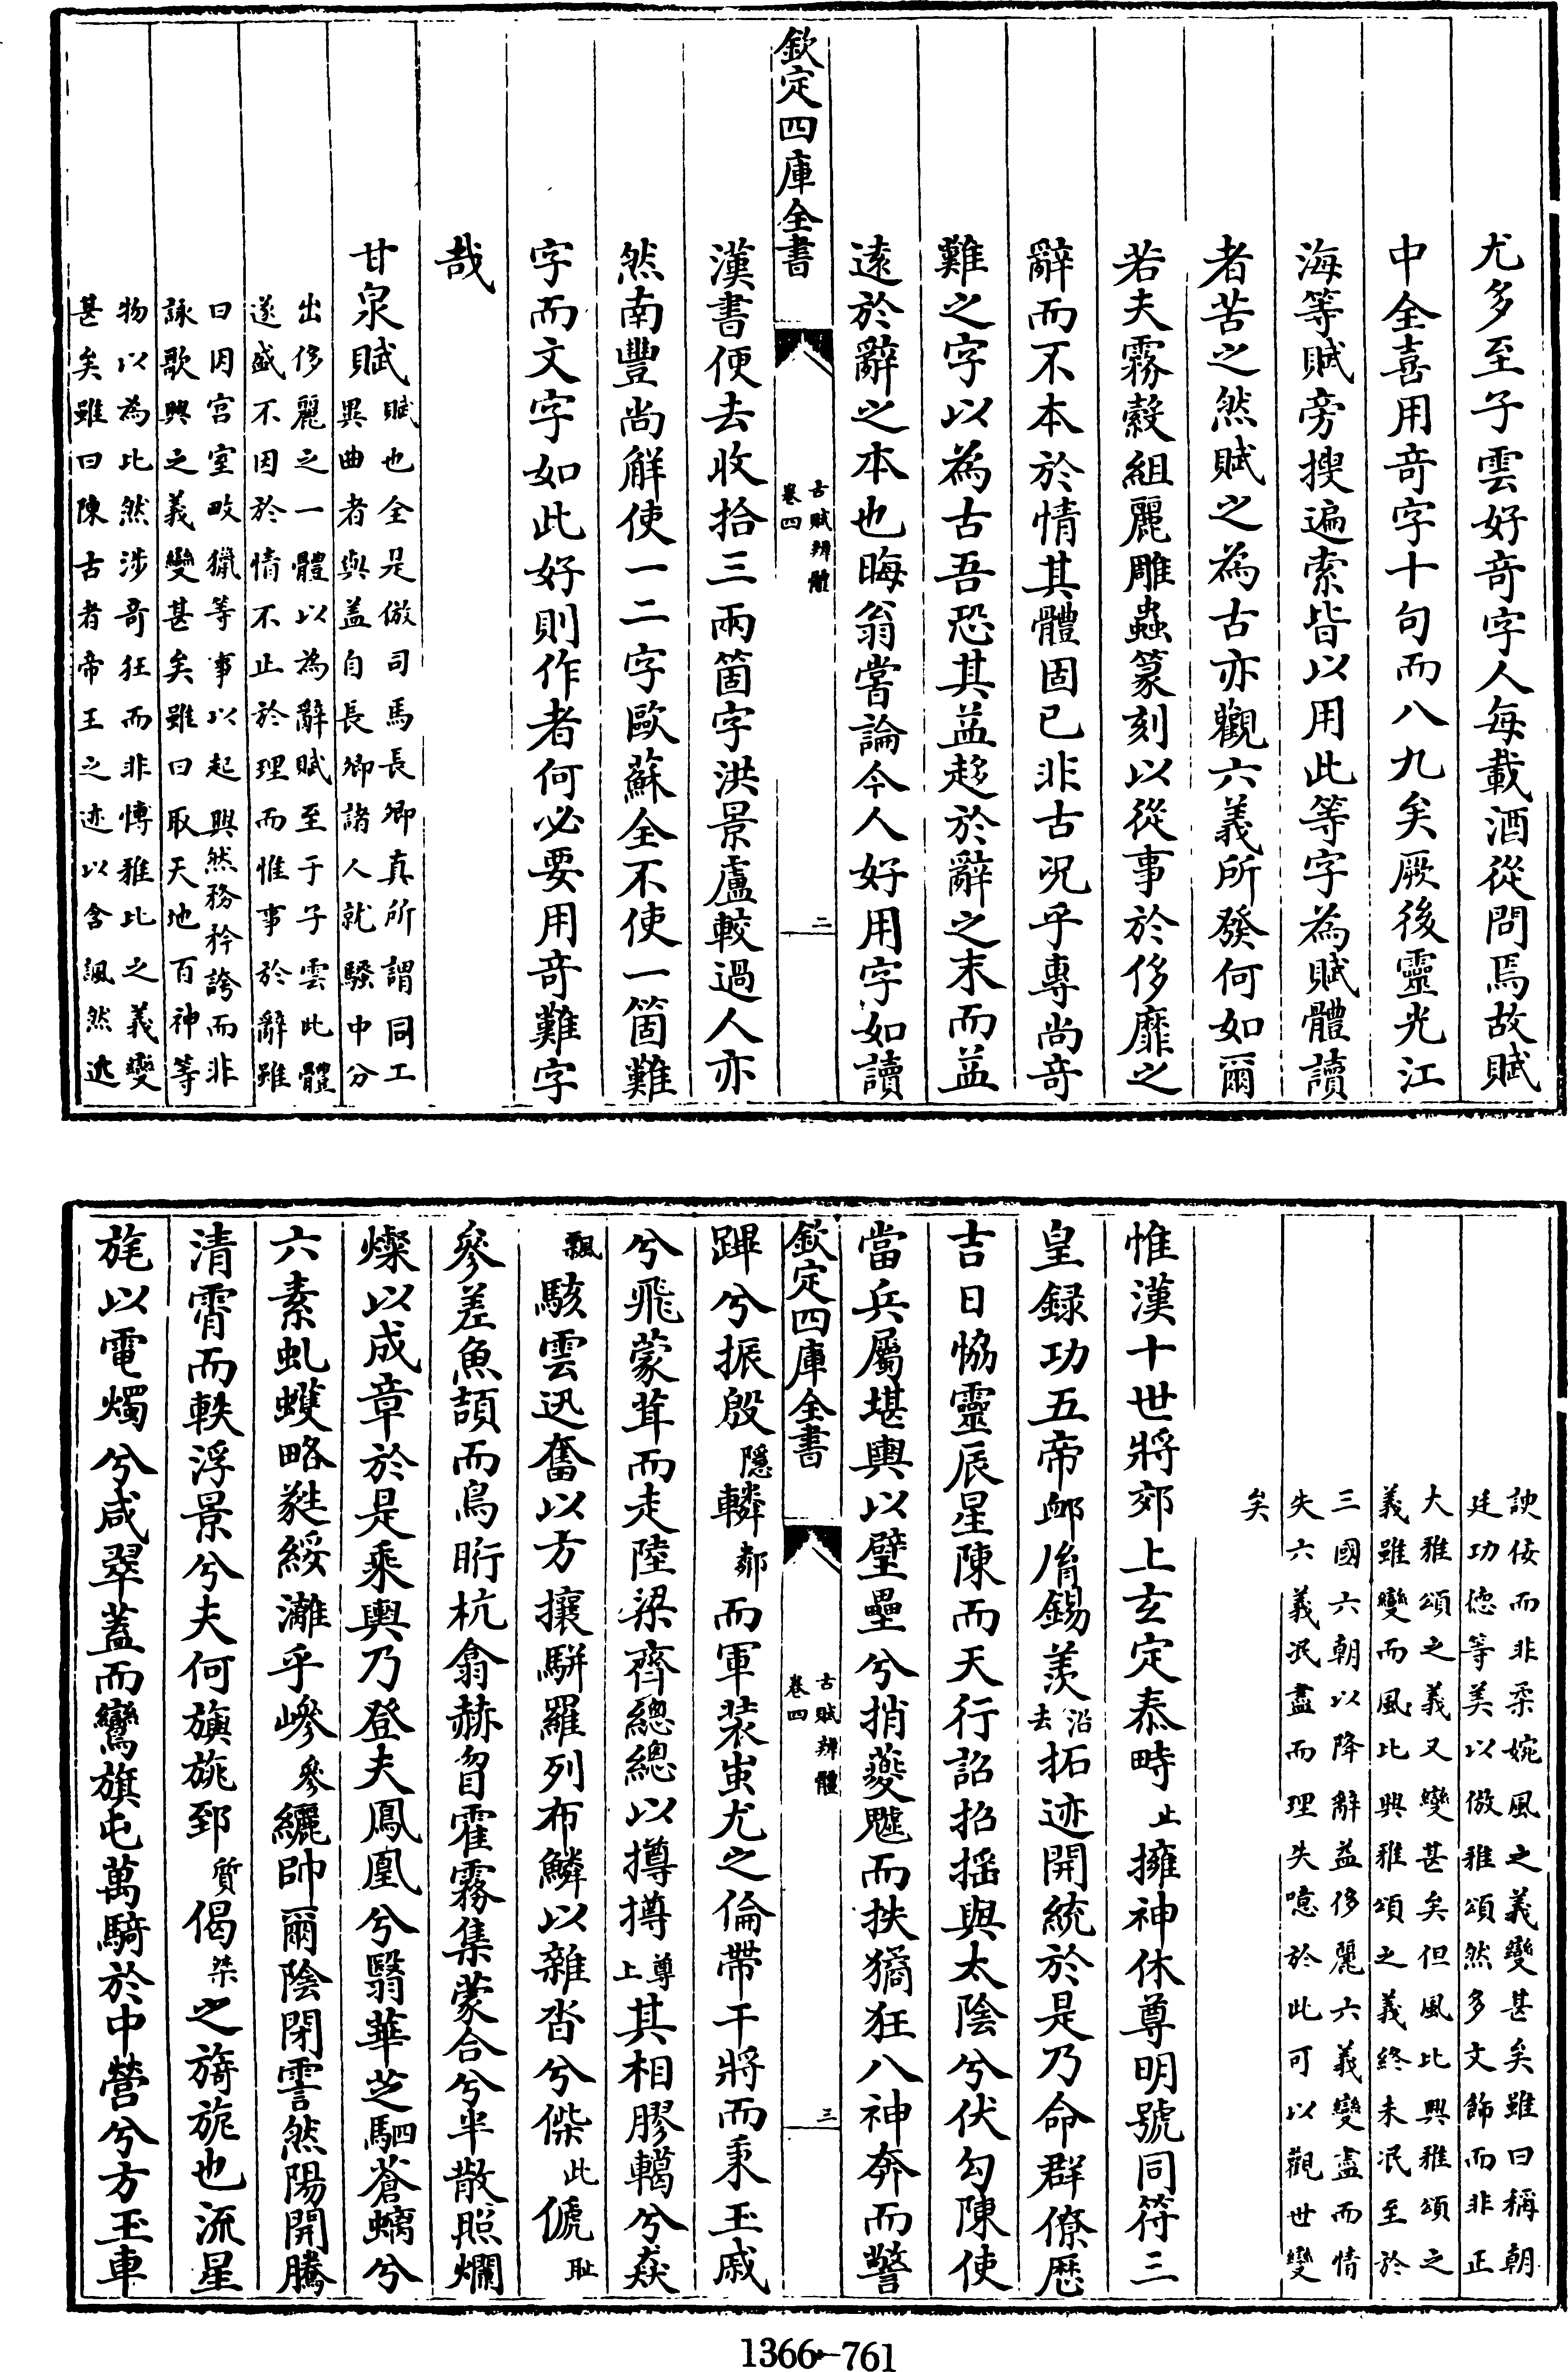 尤多至子雲好竒字人每載酒從問焉故賦
中全喜用竒字十句而八九矣厥後靈光江
海等賦旁搜遍索皆以用此等字為賦體讀
者苦之然賦之為古亦觀六義所發何如爾
若夫霧縠組麗雕蟲篆刻以從事於侈靡之
辭而不本於情其體固已非古况乎專尚竒
難之字以為古吾恐其益趍於辭之末而益
逺於辭之本也晦翁嘗論今人好用字如讀
欽定四庫全書
古賦辨體
卷四
二
漢書便去收拾三兩箇字洪景盧較過人亦
然南豐尚解使一二字歐蘇全不使一箇難
字而文字如此好則作者何必要用竒難字
哉
甘泉賦賦也全是倣司馬長卿真所謂同工
異曲者與盖自長卿諸人就騷中分
出侈麗之一體以為辭賦至于子雲此體
遂盛不因於情不止於理而惟事於辭雖
曰因宫室畋獵等事以起興然務矜誇而非
詠歌興之義變甚矣雖曰取天地百神等
物以為比然涉竒狂而非愽雅比之義變
甚矣雖曰陳古者帝王之迹以含諷然近
諛佞而非柔婉風之義變甚矣雖曰稱朝
廷功德等美以倣雅頌然多文飾而非正
大雅頌之義又變甚矣但風比興雅頌之
義雖變而風比興雅頌之義終未泯至於
三國六朝以降辭益侈麗六義變盡而情
失六義泯盡而理失噫於此可以觀世變
矣
惟漢十世將郊上玄定泰畤止擁神休尊明號同符三
皇録功五帝卹胤錫羨沿去拓迹開統於是乃命群僚歴
吉日恊靈辰星陳而天行詔招揺與太陰兮伏勾陳使
當兵屬堪輿以壁壘兮捎夔魖而抶獝狂八神奔而警
欽定四庫全書
古賦辨體
卷四
三
蹕兮振殷隱轔鄰而軍装蚩尤之倫帶干將而秉玉戚
兮飛蒙茸而走陸梁齊總總以撙撙尊上其相膠轕兮猋
飄駭雲迅奮以方攘駢羅列布鱗以雜沓兮傑此傂耻
參差魚頡而鳥䀪杭翕赫曶霍霧集蒙合兮半散照爛
燦以成章於是乘輿乃登夫鳳凰兮翳華芝駟蒼螭兮
六素虬蠖略蕤綏灕乎嵾參纚帥爾陰閉霅然陽開騰
清霄而軼浮景兮夫何旟旐郅質偈桀之旖旎也流星
旄以電燭兮咸翠蓋而鸞旗屯萬騎於中營兮方玉車
1366-761